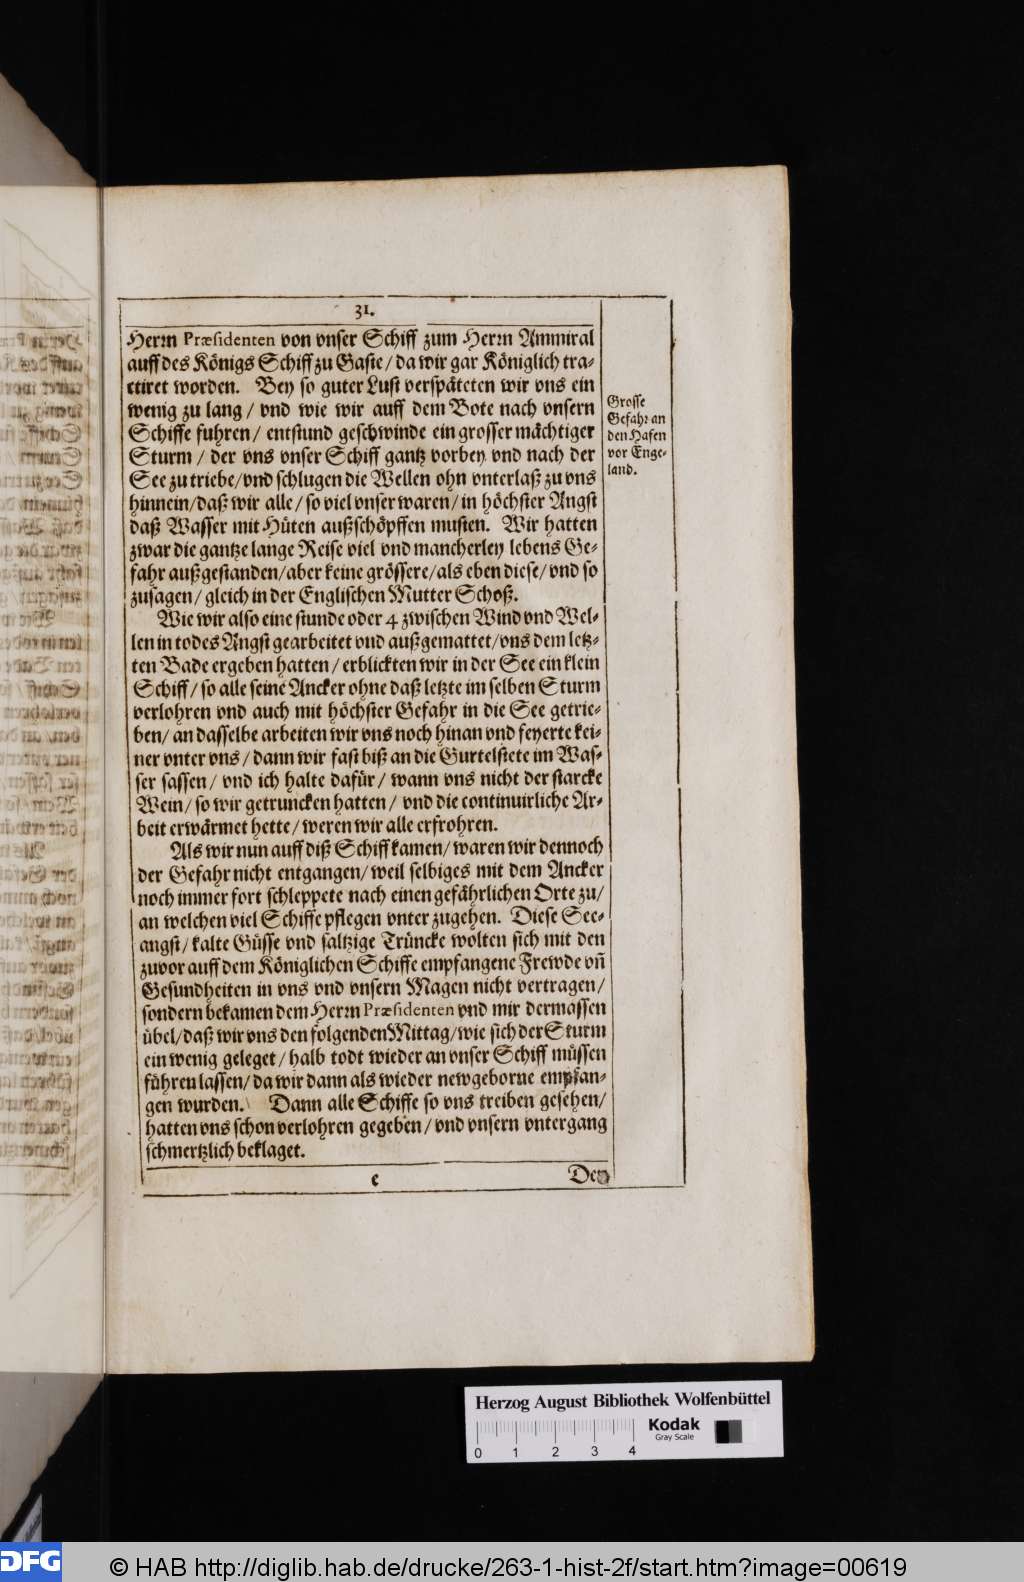 31.
Herrn Præsidenten von vnser Schiff zum Herrn Ammiral
auff des Königs Schiff zu Gaste / da wir gar Königlich tra-
ctiret worden. Bey so guter Lust verspäteten wir vns ein
wenig zu lang / vnd wie wir auff dem Bote nach vnsern
Schiffe fuhren / entstund geschwinde ein grosser mächtiger
Sturm / der vns vnser Schiff gantz vorbey vnd nach der
See zu triebe / vnd schlugen die Wellen ohn vnterlaß zu vns
hinnein / daß wir alle / so viel vnser waren / in höchster Angst
daß Wasser mit Hüten außschöpffen musten. Wir hatten
zwar die gantze lange Reise viel vnd mancherley lebens Ge-
fahr außgestanden / aber keine grössere / als eben diese / vnd so
zusagen / gleich in der Englischen Mutter Schoß.
Grosse
Gefahr an
den Hafen
vor Enge-
land.
Wie wir also eine stunde oder 4 zwischen Wind vnd Wel-
len in todes Angst gearbeitet vnd außgemattet / vns dem letz-
ten Bade ergeben hatten / erblickten wir in der See ein klein
Schiff / so alle seine Ancker ohne daß letzte im selben Sturm
verlohren vnd auch mit höchster Gefahr in die See getrie-
ben / an dasselbe arbeiten wir vns noch hinan vnd feyerte kei-
ner vnter vns / dann wir fast biß an die Gurtelstete im Was-
ser sassen / vnd ich halte dafür / wann vns nicht der starcke
Wein / so wir getruncken hatten / vnd die continuirliche Ar-
beit erwärmet hette / weren wir alle erfrohren.
Als wir nun auff diß Schiff kamen / waren wir dennoch
der Gefahr nicht entgangen / weil selbiges mit dem Ancker
noch immer fort schleppete nach einen gefährlichen Orte zu /
an welchen viel Schiffe pflegen vnter zugehen. Diese See-
angst / kalte Güsse vnd saltzige Trüncke wolten sich mit den
zuvor auff dem Königlichen Schiffe empfangene Frewde vñ
Gesundheiten in vns vnd vnsern Magen nicht vertragen /
sondern bekamen dem Herrn Præsidenten vnd mir dermassen
übel / daß wir vns den folgenden Mittag / wie sich der Sturm
ein wenig geleget / halb todt wieder an vnser Schiff müssen
führen lassen / da wir dann als wieder newgeborne empfan-
gen wurden. Dann alle Schiffe so vns treiben gesehen /
hatten vns schon verlohren gegeben / vnd vnsern vntergang
schmertzlich beklaget.
e
Den
Herzog August Bibliothek Wolfenbüttel
0 1 2 3 4
Kodak
Gray Scale
DFG
© HAB http://diglib.hab.de/drucke/263-1-hist-2f/start.htm?image=00619